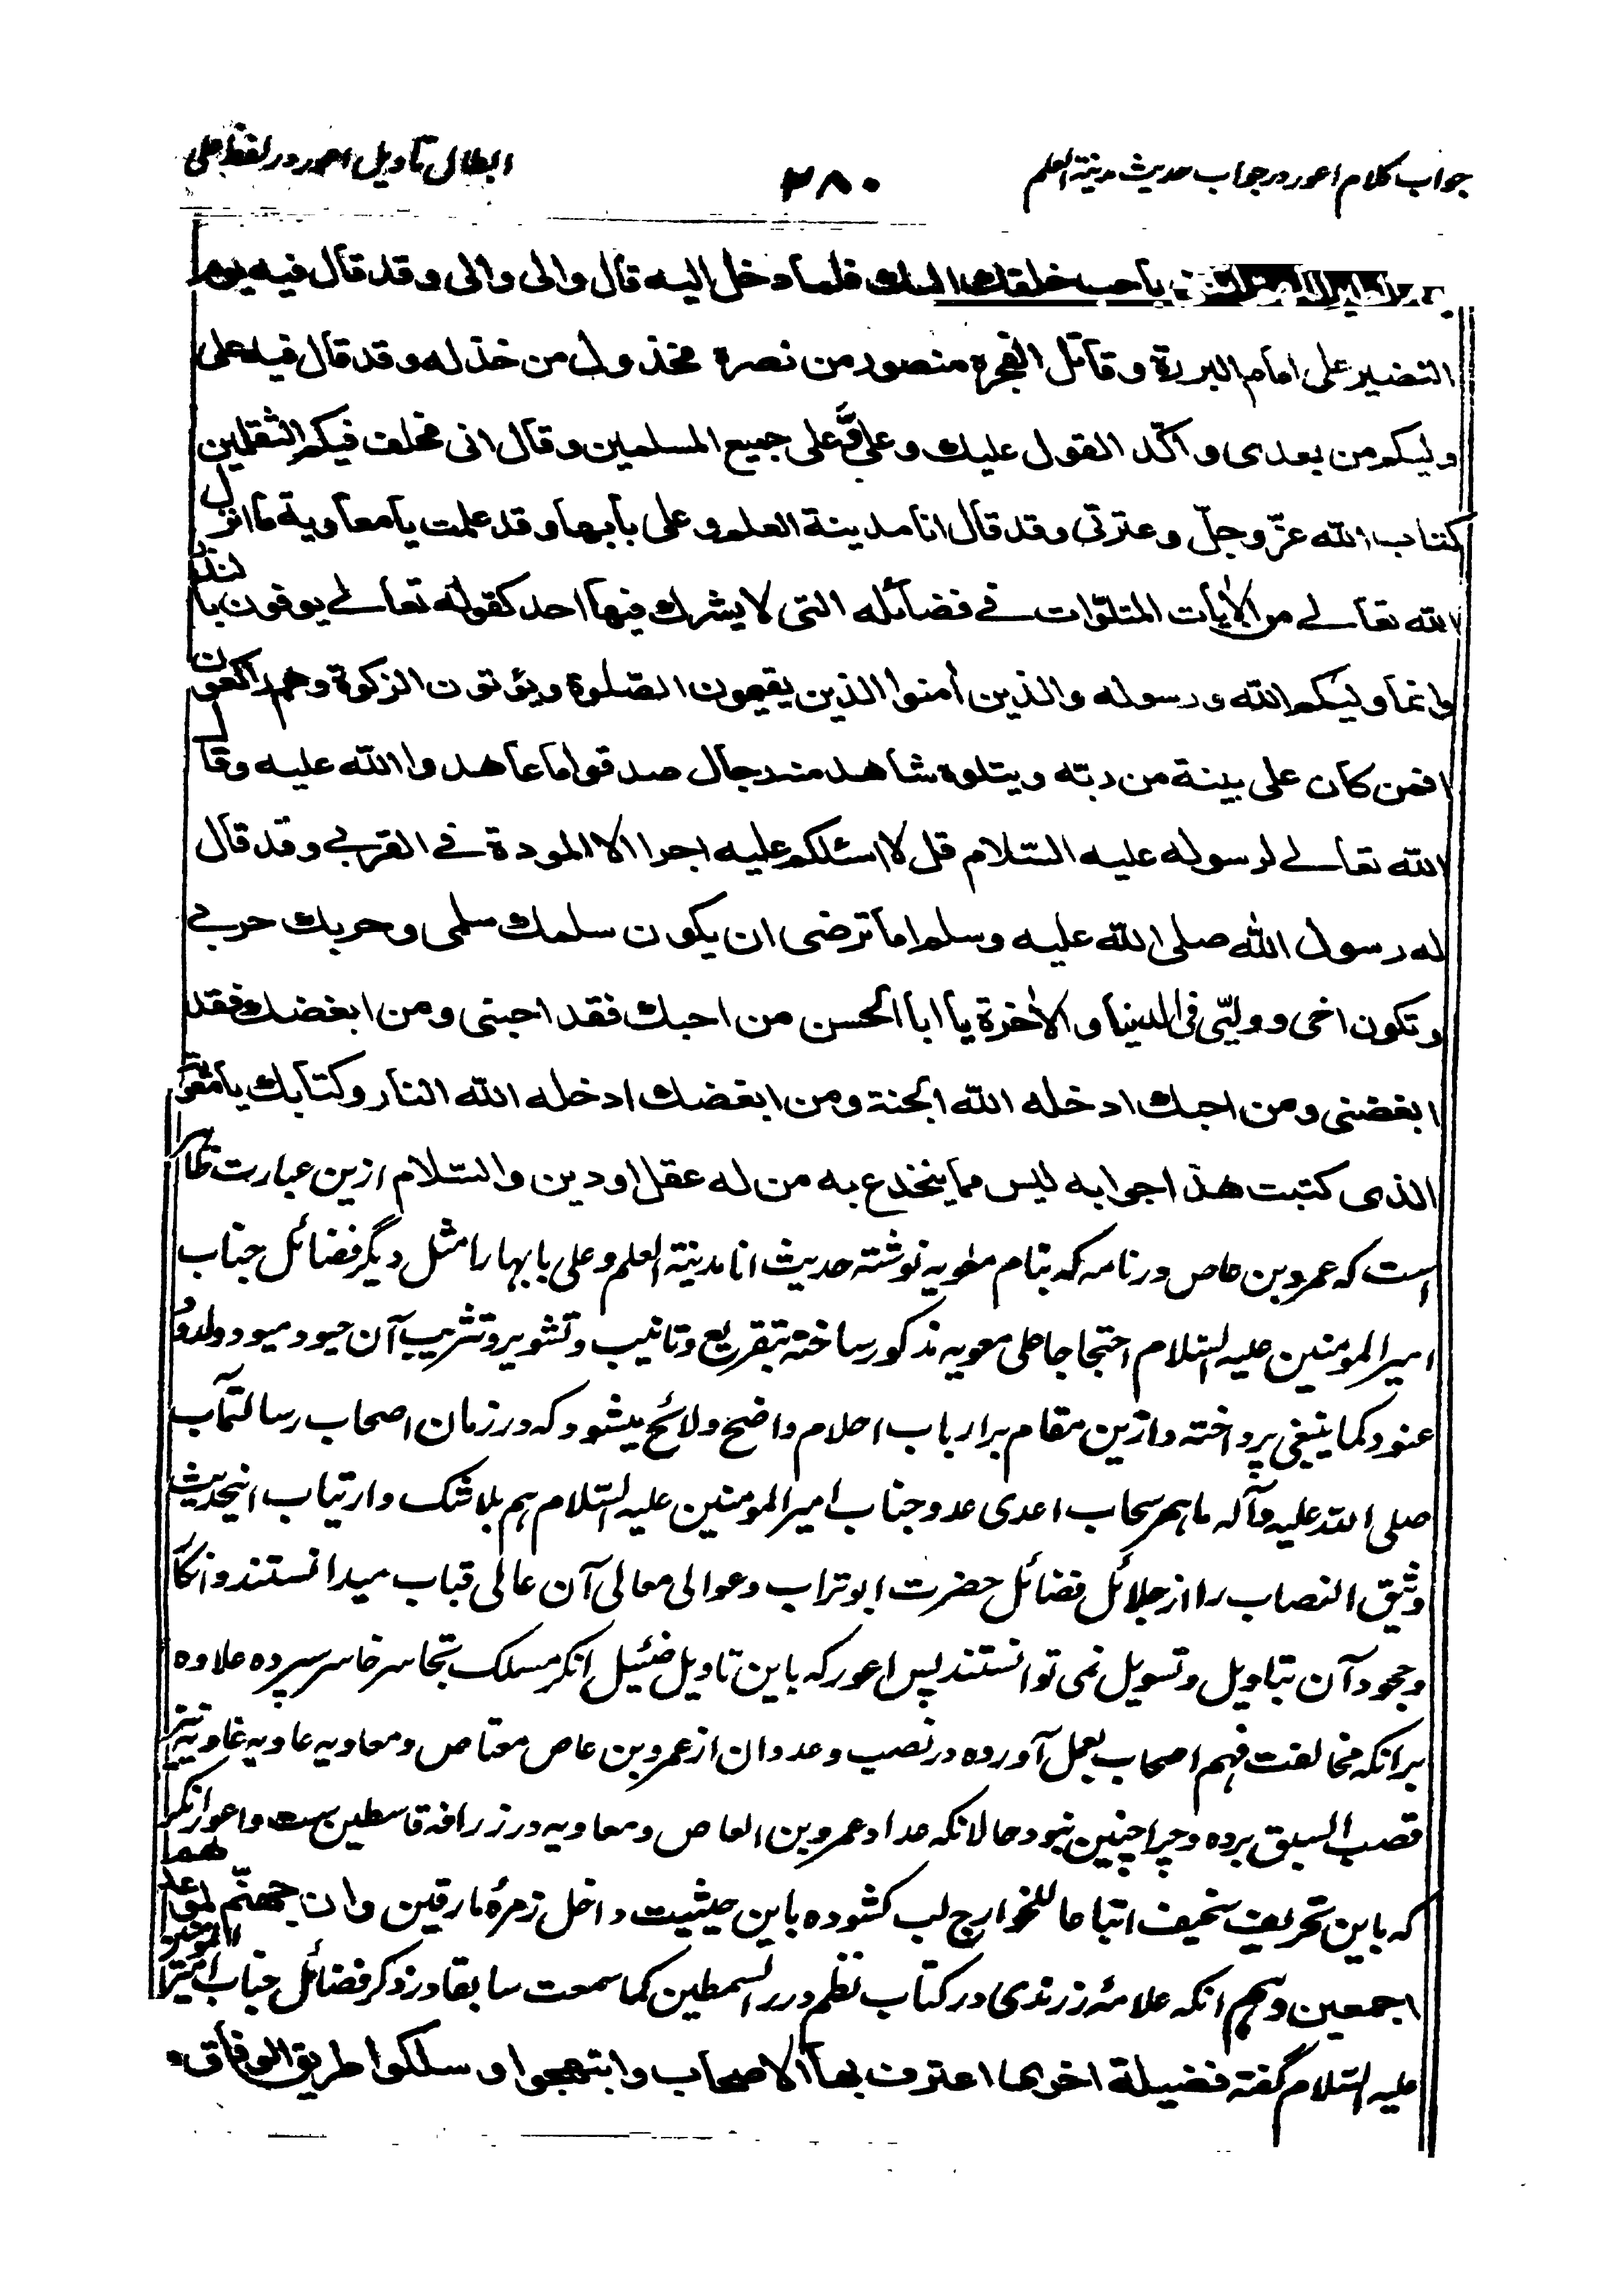 جواب کلام اعور در جواب حدیث مدینة العلم
۳۸۰
ابطال تأویل اعور در لفظ علی
بأحب خلقك اليك فلما دخل اليه قال والی والی وقد قال فيه يوم
النضير علی امام البررة وقاتل الفجرة منصور من نصره مخذول من خذله وقد قال فيه علی
وليكم من بعدی واكّد القول عليك وعلیّ وعلی جميع المسلمين وقال انی مخلف فيكم الثقلين
كتاب الله عزّ وجلّ وعترتی وقد قال انا مدينة العلم وعلی بابها وقد علمت يا معاوية ما انزل
الله تعالی من الآيات المتلوّات فی فضائله التی لا يشرك فيها احد كقوله تعالی يوفون بالنذر
وانما وليكم الله ورسوله والذين اٰمنوا الذين يقيمون الصّلوة ويؤتون الزكوة وهم راكعون
افمن كان علی بينة من ربّه ويتلوه شاهد منه رجال صدقوا ما عاهدوا الله عليه وقال
الله تعالی لرسوله عليه السّلام قل لا اسئلكم عليه اجرا الا المودة فی القربی وقد قال
له رسول الله صلی الله عليه وسلم اما ترضی ان يكون سلمك سلمی وحربك حربی
وتكون اخی ووليّی فی الدنيا والاٰخرة يا ابا الحسن من احبك فقد احبنی ومن ابغضك فقد
ابغضنی ومن احبك ادخله الله الجنة ومن ابغضك ادخله الله النار وكتابك يا معوية
الذی كتبت هذا جوابه ليس مما ينخدع به من له عقل او دين والسّلام ازین عبارت ظاهر
است که عمرو بن عاص در نامه که بنام معویه نوشته حدیث انا مدینة العلم وعلی بابها را مثل دیگر فضائل جناب
امیر المومنین علیه السّلام احتجاجا علی معویه مذکور ساخته بتقریع وتانیب وتشویر وتثریب آن حیود میود ولدود
عنود کما ینبغی پرداخته وازین مقام بر ارباب احلام واضح ولائح میشود که در زمان اصحاب رسالتمآب
صلی الله علیه وآله ما همر سحاب اعدی عدو جناب امیر المومنین علیه السّلام هم بلا شک وارتیاب اینحدیث
وثیق النصاب را از جلائل فضائل حضرت ابوتراب وعوالی معالی آن عالی قباب میدانستند وانکار
وجحود آن بتاویل وتسویل نمی توانستند پس اعور که باین تاویل ضئیل انکر مسلک تجاسر خاسر سپرده علاوه
برانکه مخالفت فهم اصحاب بعمل آورده در نصب وعدوان از عمرو بن عاص معتاص ومعاویه عاویه غاویه نیز
قصب السبق برده وچرا چنین نبود حالانکه عداد عمرو بن العاص ومعاویه در زرافه قاسطین ست واعور انکر
که باین تحریف سخیف اتباعا للخوارج لب کشوده باین حیثیت داخل زمرهٔ مارقین وان جهنّم لموعدهما
اجمعین وهم انکه علامهٔ زرندی در کتاب نظم درر السمطین کما سمعت سابقا در ذکر فضائل جناب امیر المومنین
علیه السّلام گفته فضيلة اخرى اعترف بها الاصحاب وابتهجوا وسلكوا طريق الوفاق